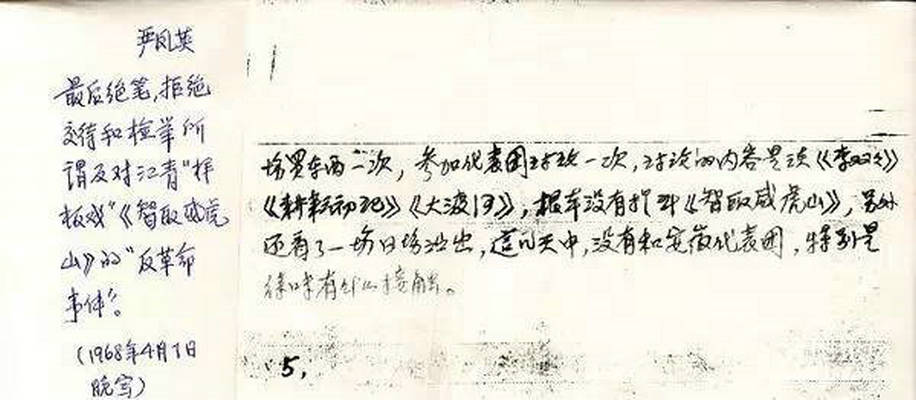 严凤英
最后绝笔,拒绝
交待和检举所
谓反对江青“样
板戏”《智取威虎
山》的“反革命
事件”。
(1968年4月7日
晚写)
场买东西一次,参加代表团讨论一次,讨论的内容是谈《李双双》
《耕耘初记》《大渡河》,根本没有提到《智取威虎山》,另外
还看了一场日场演出,这几天中,没有和安徽代表团,特别是
有什么接触。
5.